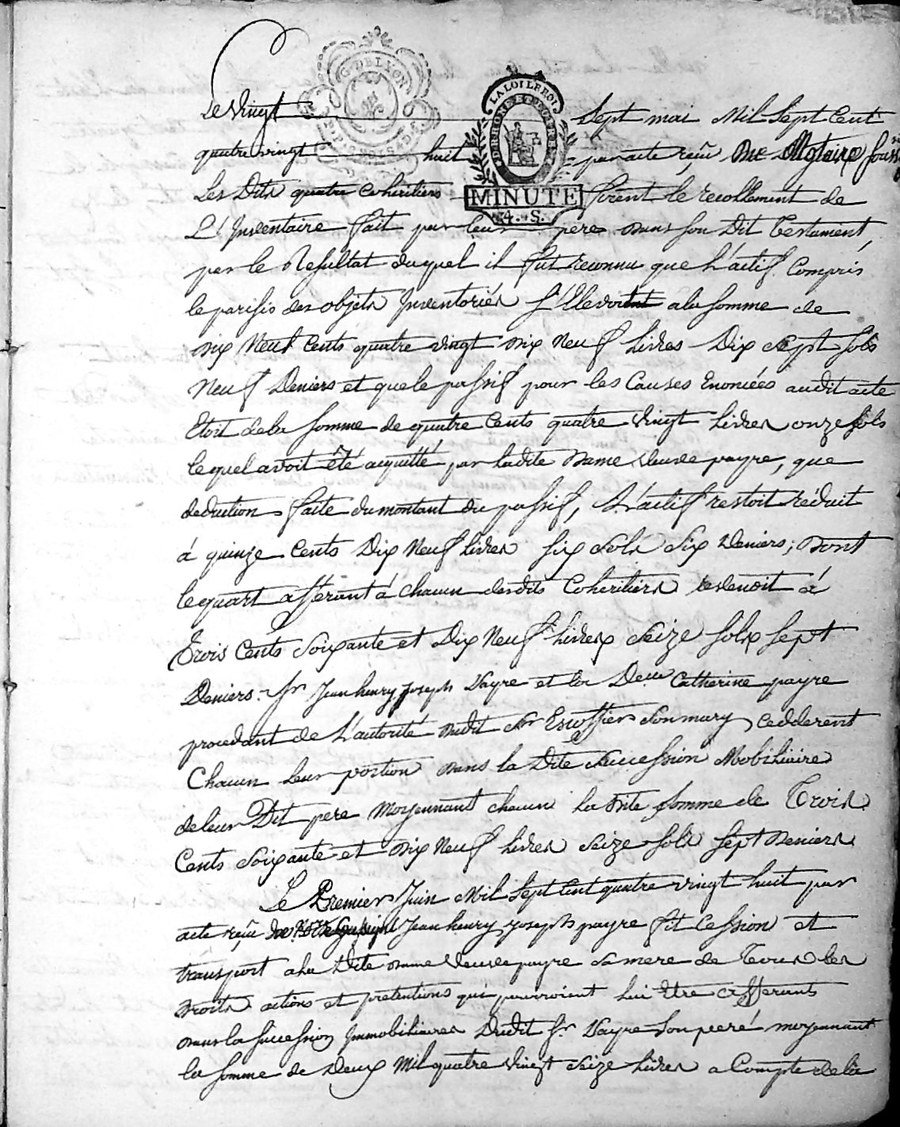 G. DE LYON
LA LOI LE ROI
MINUTE
4. S.
Le vingt sept mai Mil Sept Cent
quatre vingt huit par acte reçu Me Notaire souss
Les Dits quatre Coheritiers firent le recollement de
L'Inventaire fait par leur pere Dans son Dit Testament
par le Resultat duquel il fut reconnu que L'actif Compris
le parisis des objets Inventoriés S'Elevoit a la somme de
Dix Neuf Cents quatre vingt Dix Neuf Livres Dix Sept Sols
Neuf Deniers et que le passif pour les Causes Enoncées audit acte
Etoit de la Somme de quatre Cents quatre vingt Livres onze Sols
lequel avoit Eté acquitté par ladite Dame veuve payre, que
deduction faite du montant du passif, L'actif restoit réduit
à quinze Cents Dix Neuf Livres Six Sols Six Deniers; Dont
le quart afferant à chacun desdits Coheritiers revenoit à
Trois Cents Soixante et Dix Neuf Livres Seize Sols Sept
Deniers. Sr. Jean henry Joseph Payre et la Delle Catherine payre
procedant de L'autorité Dudit Sr Escoffier Son mary, cedderent
Chacun leur portion Dans la Dite Succession Mobiliaire
de leur Dit pere Moyennant chacun la Dite Somme de Trois
Cents Soixante et Dix Neuf Livres Seize Sols Sept Deniers
Le Premier Juin Mil Sept Cent quatre vingt huit par
acte reçu Jean henry Joseph payre fit Cession et
transport a la Dite Dame veuve payre Sa mere de Tous les
Droits actions et pretentions qui pouvoient lui Etre afferants
Dans la Succession Immobiliaire Dudit Sr Payre Son pere moyennant
la Somme de Deux Mil quatre vingt Seize Livres a Compte de la